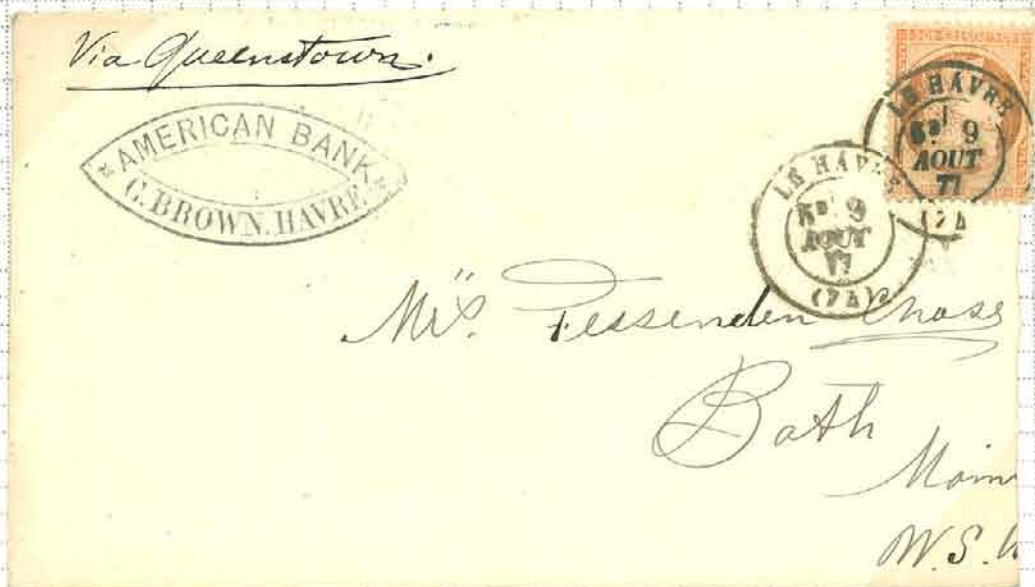 Via Queenstown.
AMERICAN BANK
G. BROWN. HAVRE
LE HAVRE
5E 9
AOUT
77
(74)
LE HAVRE
5E 9
AOUT
77
(74)
Fessenden Chase
Bath
Main